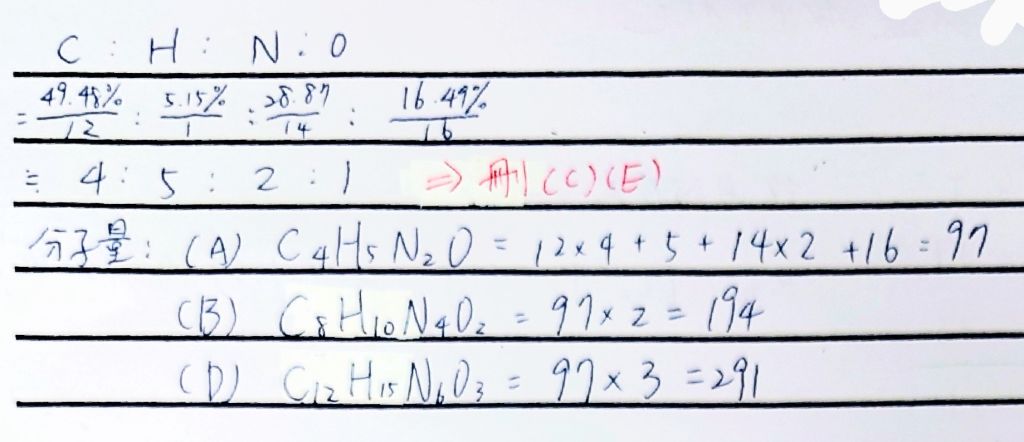 C : H : N : O
= 49.48%/12 : 5.15%/1 : 28.87/14 : 16.49%/16
≡ 4 : 5 : 2 : 1 ⇒ 刪(C)(E)
分子量: (A) C₄H₅N₂O = 12×4 + 5 + 14×2 +16 = 97
(B) C₈H₁₀N₄O₂ = 97×2 = 194
(D) C₁₂H₁₅N₆O₃ = 97×3 = 291